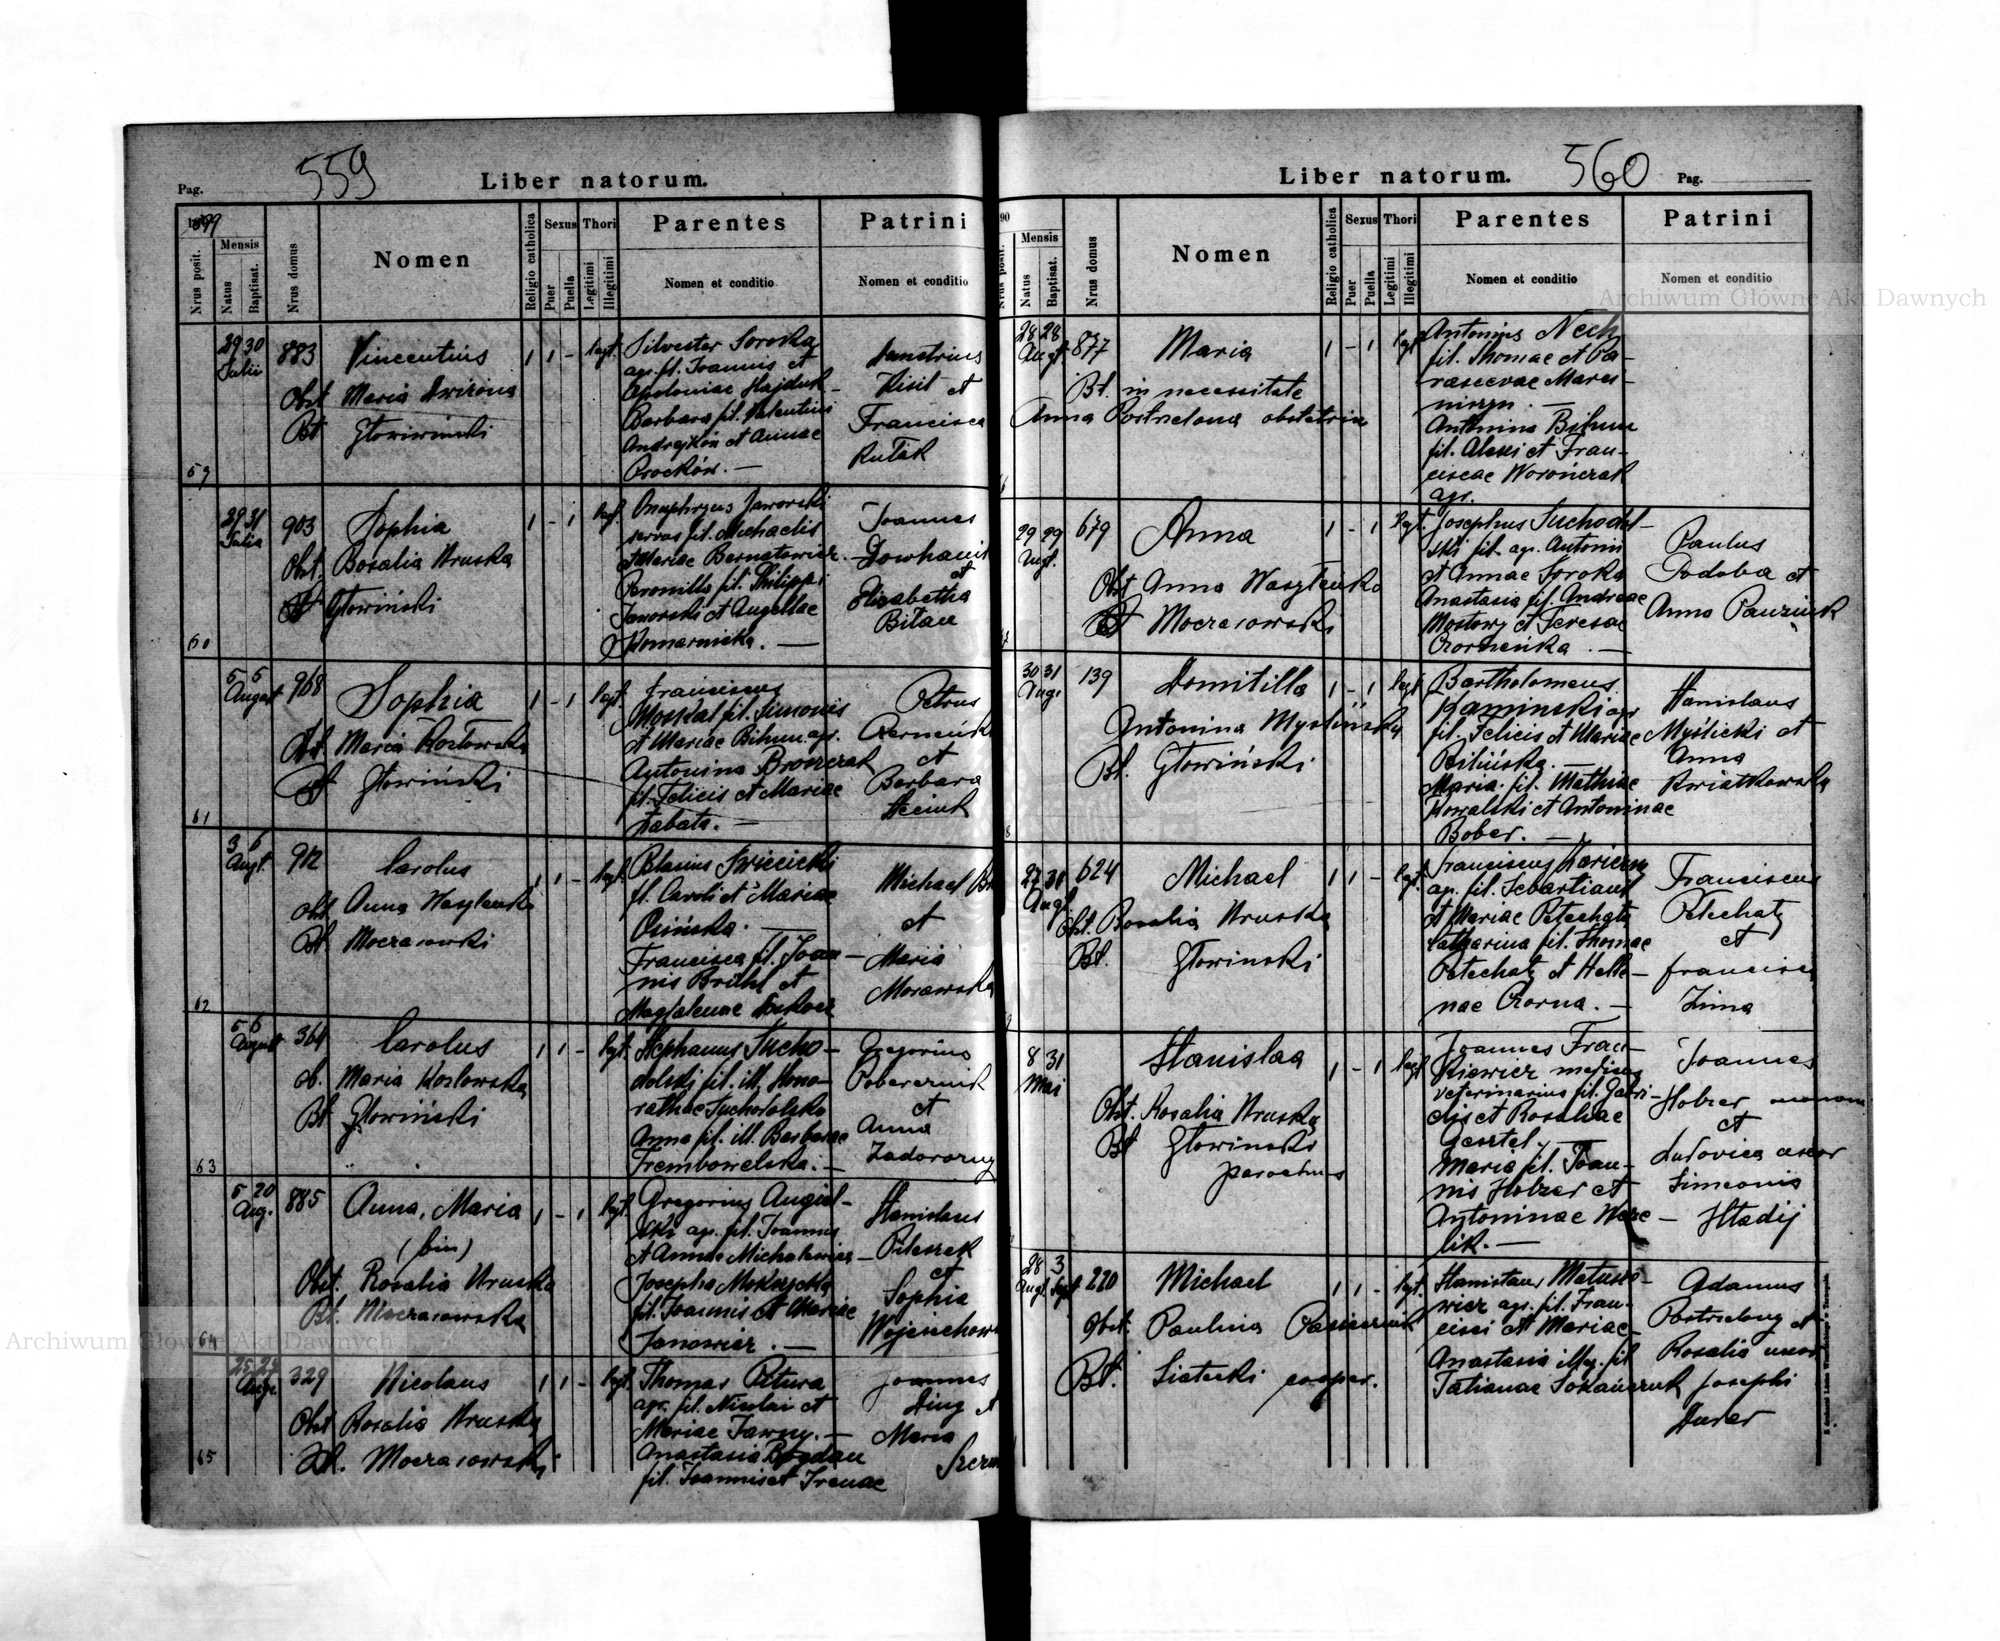 559
Pag.
Liber natorum.
1899
Nrus posit.
Mensis
Natus
Baptisat.
Nrus domus
Nomen
Religio catholica
Sexus
Puer
Puella
Thori
Legitimi
Illegitimi
Parentes
Nomen et conditio
Patrini
Nomen et conditio
59
29 30
Julii
883
Vincentius
Obst. Maria
Bt.
1 1 - legt.
Silvester Soroka
agr. fil. Joannis et
Apoloniae Hajduk
Barbara fil. Valentini
et Annae
Demetrius
Kisil et
Francisca
Rutak
60
29 31
Julii
903
Sophia
Obst. Rosalia Hruska
Bt. Głowiński
1 - 1 legt.
Onuphryus Jaworski
servus fil. Michaelis
et Mariae Bernatowicz.
Petronilla fil. Philippi
Jaworski et Angellae
Komarnicka. —
Joannes
et
Elisabetha
Bitan
61
5 5
August
968
Sophia
Obst. Maria Kozłowska
Bt. Głowiński
1 - 1 legt.
Franciscus
Moskal fil. Simonis
et Mariae Bihun agr.
Antonina
fil. Felicis et Mariae
Łabata. —
Petrus
et
Barbara
62
3 6
Augt.
912
Carolus
Obst. Anna Wasylenko
Bt. Moczarowski
1 1 - legt.
Blasius Święcicki
fil. Caroli et Mariae
Osińska. —
Francisca fil. Joan-
nis Brühl et
Magdalenae
Michael
et
Maria
Morawska
63
5 6
August
364
Carolus
ob. Maria Kozlowska
Bt. Głowiński
1 1 - legt.
Stephanus Sucho-
dolski fil. ill. Hono-
rathae Suchodolska
Anna fil. ill. Barbarae
Trembowelska. —
Gregorius
Pobereznik
et
Anna
Zadorozny
64
5 20
Aug.
885
Anna, Maria
(bin)
Obst. Rosalia Hruska
Bt. Moczarowski
1 - 1 legt.
Gregorius Angiel-
ski agr. fil. Joannis
et Annae Michalewicz
Josepha
fil. Joannis et Mariae
Janowicz. —
Stanislaus
et
Sophia
65
25 27
Aug.
329
Nicolaus
Obst. Rosalia Hruska
Bt. Moczarowski
1 1 - legt.
Thomas Petura
agr. fil. Nicolai et
Mariae Jawny. —
Anastasia Bogdan
fil. Joannis et Irenae
Joannes
et
Maria
Liber natorum.
560
Pag.
90
Nrus posit.
Mensis
Natus
Baptisat.
Nrus domus
Nomen
Religio catholica
Sexus
Puer
Puella
Thori
Legitimi
Illegitimi
Parentes
Nomen et conditio
Patrini
Nomen et conditio
28 28
Augt.
877
Maria
Bt. in necessitate
Anna Postrelona obstetrix
1 - 1 legt.
Antonius Nech
fil. Thomae et Pa-
rascevae Marci-
niszyn. —
Antonina Bihun
fil. Alexi et Fran-
ciscae Worończak
agr.
29 29
Augt.
679
Anna
Obst. Anna Wasylenko
Bt. Moczarowski
1 - 1 legt.
Josephus Suchodol-
ski fil. agr. Antonii
et Annae Soroka
Anastasia fil. Andreae
Mostowy et Teresae
Paulus
Podoba et
Anna
30 31
Augt.
139
Domitilla
Antonina Myslińska
Bt. Głowiński
1 - 1 legt.
Bartholomeus
Kaminski agr
fil. Felicis et Mariae
Bilińska. —
Maria fil. Mathiae
Kowalski et Antoninae
Bober. —
Stanislaus
Myślicki et
Anna
Kwiatkowska
27 31
Augt.
624
Michael
Obst. Rosalia Hruska
Bt. Głowinski
1 1 - legt.
Franciscus
agr. fil. Sebastiani
et Mariae Petechaty
Catharina fil. Thomae
Petechaty et Hele-
nae Czorna. —
Franciscus
Petechaty
et
Francisca
Zima
8 31
Mai
Stanislaa
Obst. Rosalia Hruska
Bt. Głowinski
parochus
1 - 1 legt.
Joannes Fran-
kiewicz
veterinarius fil. Gabri-
elis et Rosaliae
Gesztel.
Maria fil. Joan-
nis Holzer et
Antoninae
lik. —
Joannes
Holzer
et
Ludovica uxor
Simeonis
Hładij
28 3
Augt. Sept
220
Michael
Obst. Paulina
Bt. Siatecki cooper.
1 1 - legt.
Stanislaus Matuso-
wicz agr. fil. Fran-
cisci et Mariae
Anastasia illeg. fil
Tatianae
Adamus
et
Rosalia uxor
Josephi
Archiwum Główne Akt Dawnych
Archiwum Główne Akt Dawnych